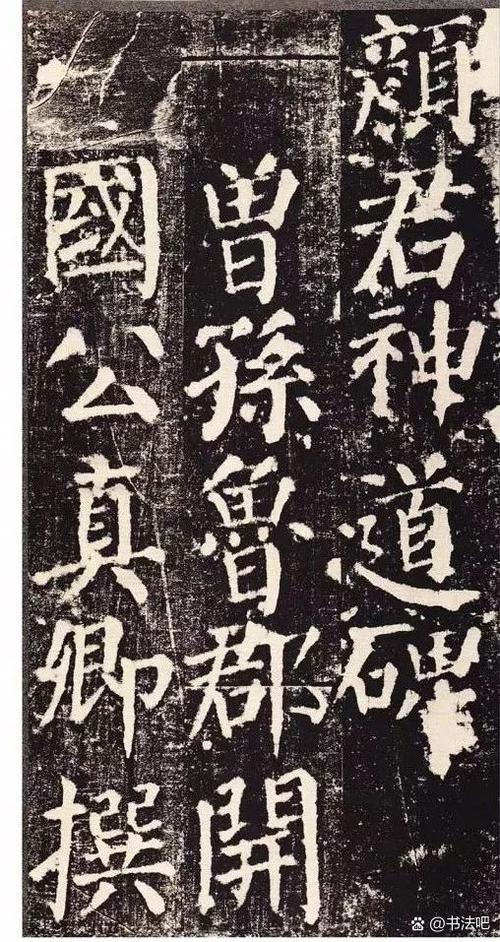 顏君神道碑
曾孫魯郡開
國公真卿撰
@书法吧